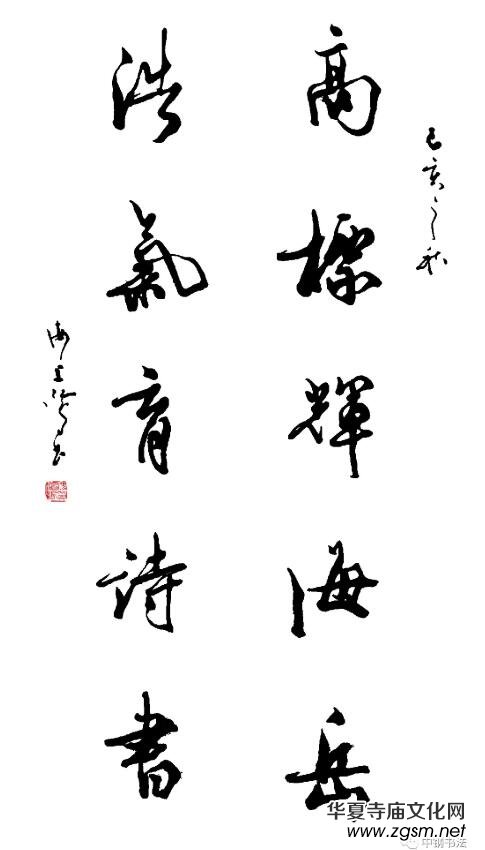 己亥之秋
高標輝海岳
浩氣育詩書
华夏寺庙文化网
www.zgsm.net
中钢书法